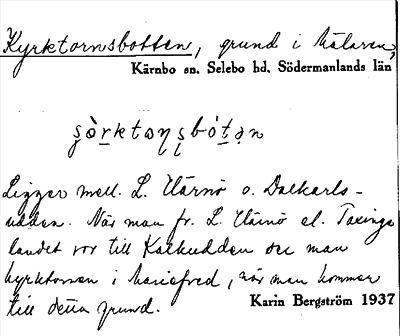 Kyrktornsbotten, grund i Mälaren,
Kärnbo sn. Selebo hd. Södermanlands län
Ligger mell. L. Ulärnö o. Dalkarls-
udden. När man fr. L. Ulärnö el. Taxinge
landet ror till Kalkudden ser man
kyrktornen i Mariefred, när man kommer
till detta grund.
Karin Bergström 1937